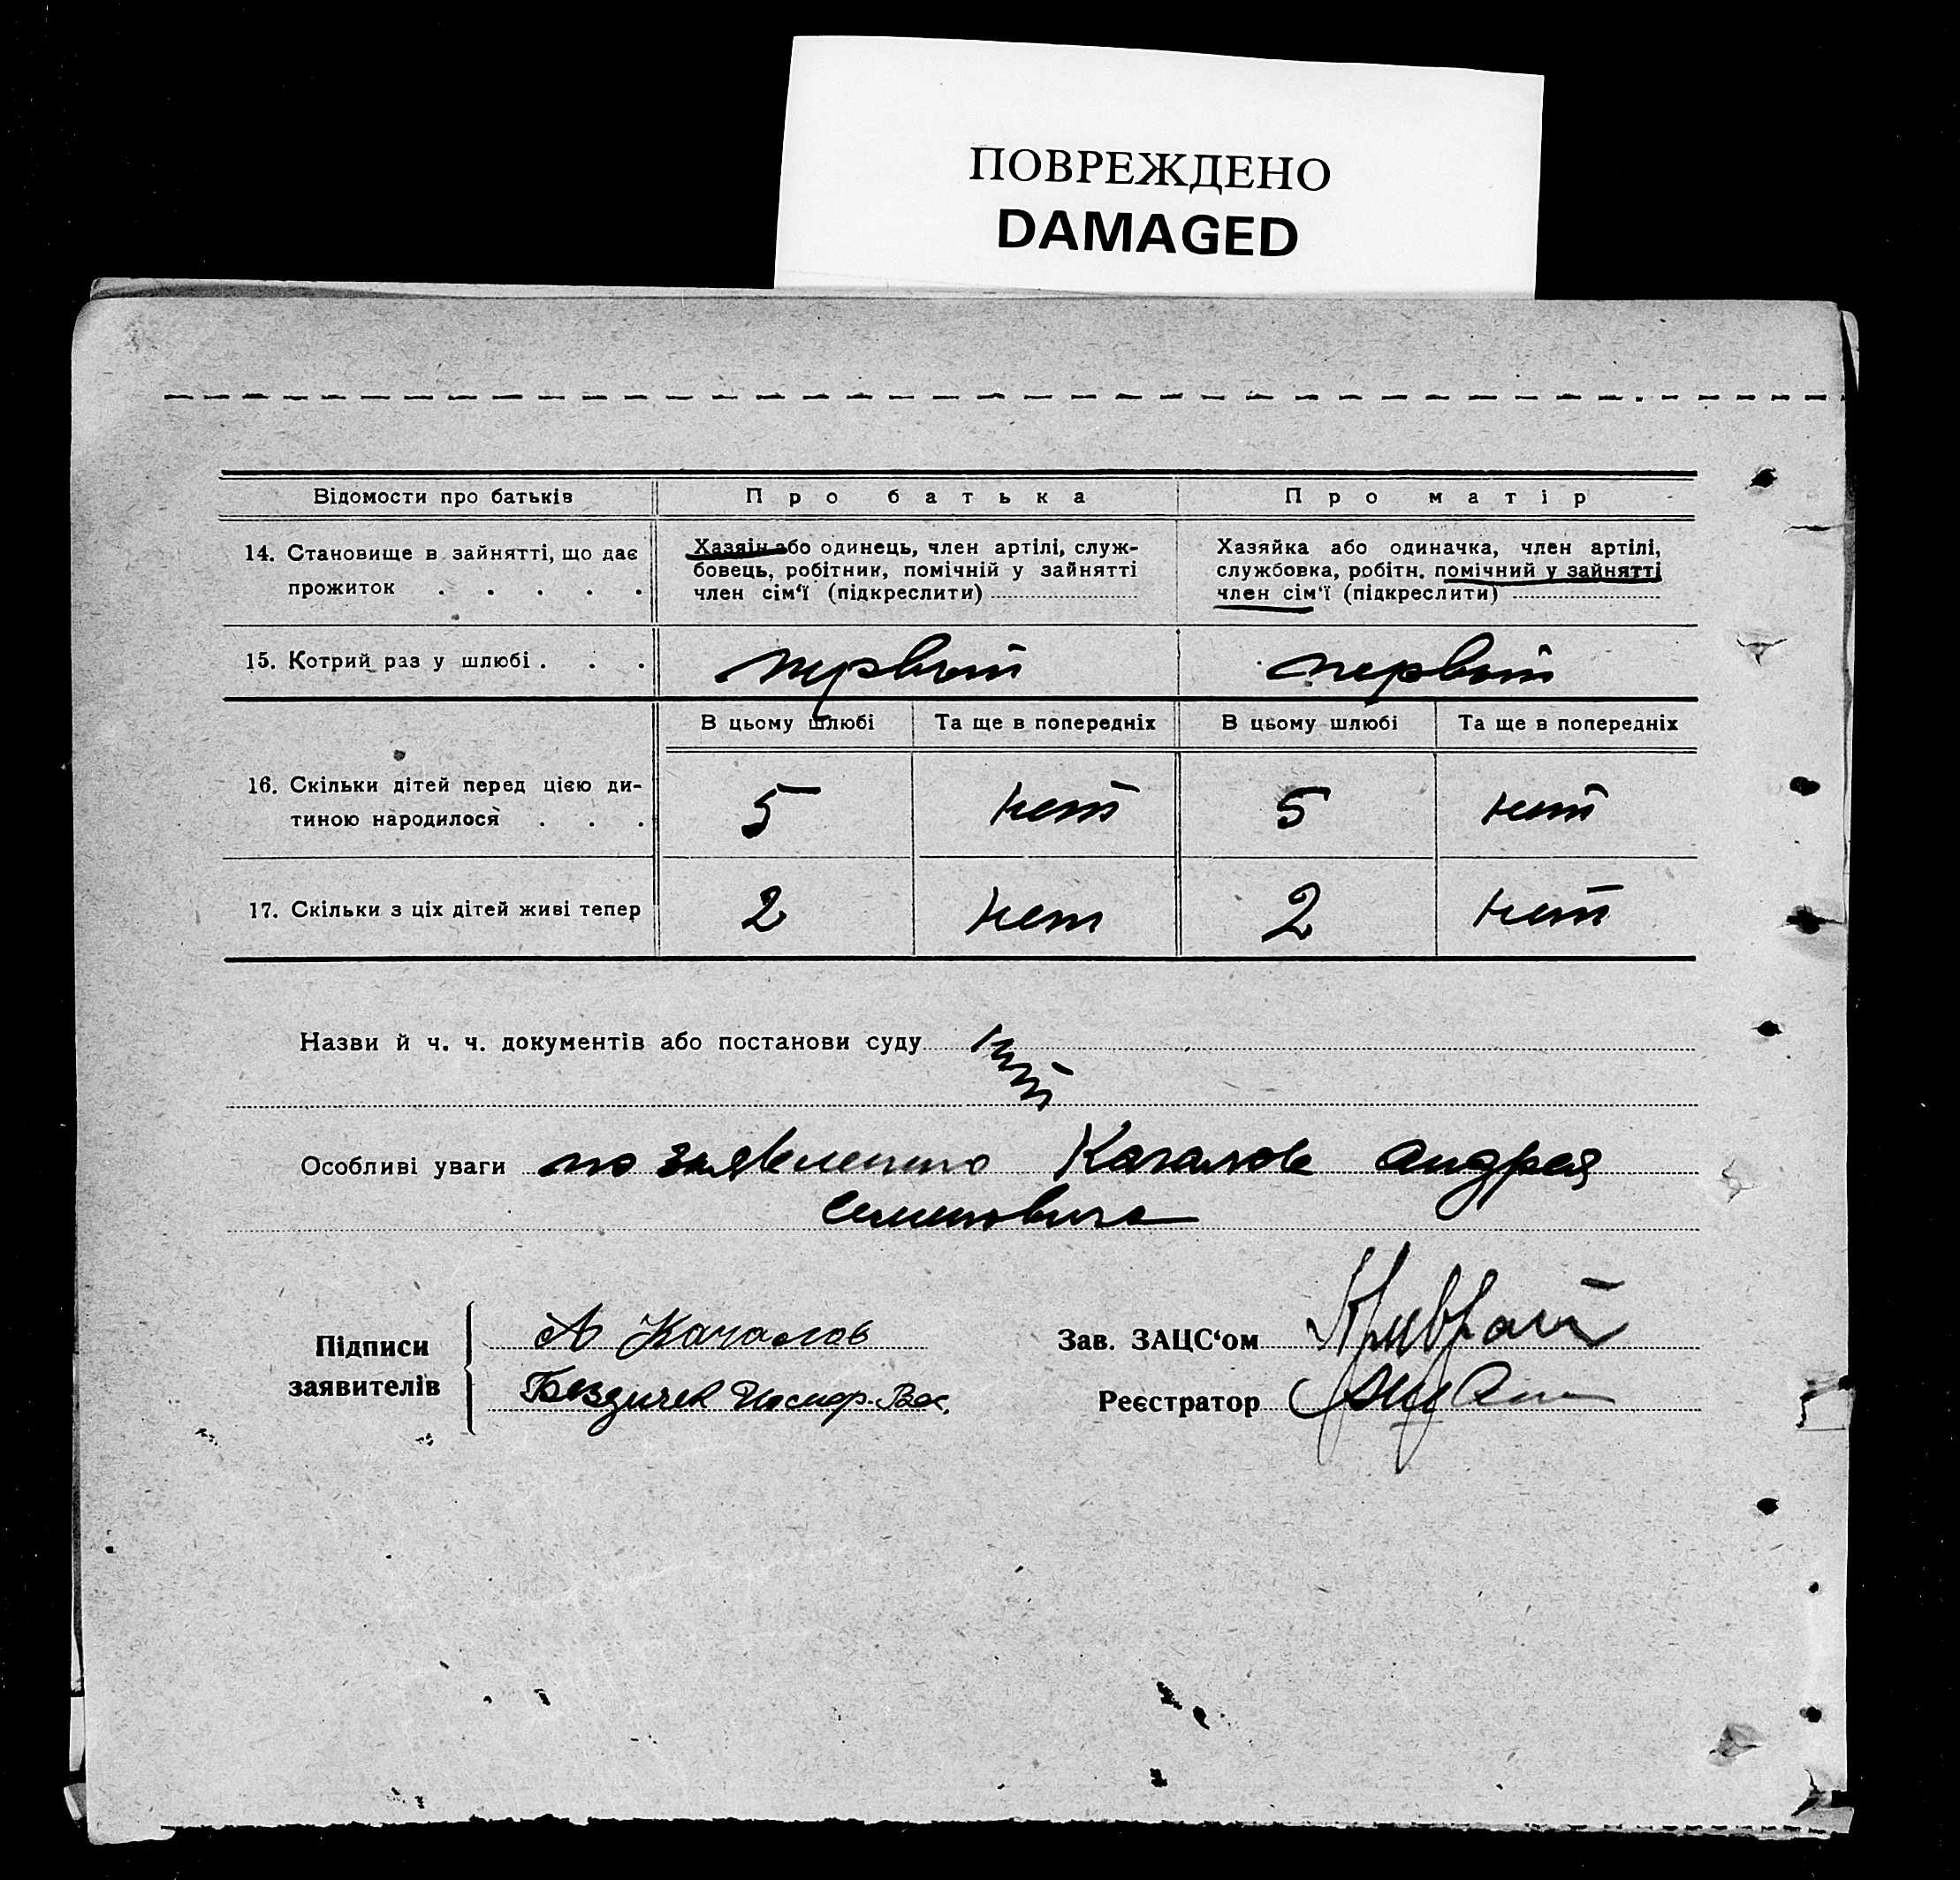 ПОВРЕЖДЕНО
DAMAGED
Відомости про батьків
Про батька
Про матір
14. Становище в зайнятті, що дає
прожиток . . . . .
Хазяїн або одинець, член артілі, служ-
бовець, робітник, помічній у зайнятті
член сім'ї (підкреслити)
Хазяйка або одиначка, член артілі,
службовка, робітн. помічний у зайнятті
член сім'ї (підкреслити)
15. Котрий раз у шлюбі . . .
первый
первый
В цьому шлюбі
Та ще в попередніх
В цьому шлюбі
Та ще в попередніх
16. Скільки дітей перед цією ди-
тиною народилося . . .
5
нет
5
нет
17. Скільки з ціх дітей живі тепер
2
нет
2
нет
Назви й ч. ч. документів або постанови суду
Особливі уваги по заявлению Качалова Андрея
Семеновича
Підписи
заявителів
А Качалов
Иосиф. Вас.
Зав. ЗАЦС'ом
Реєстратор